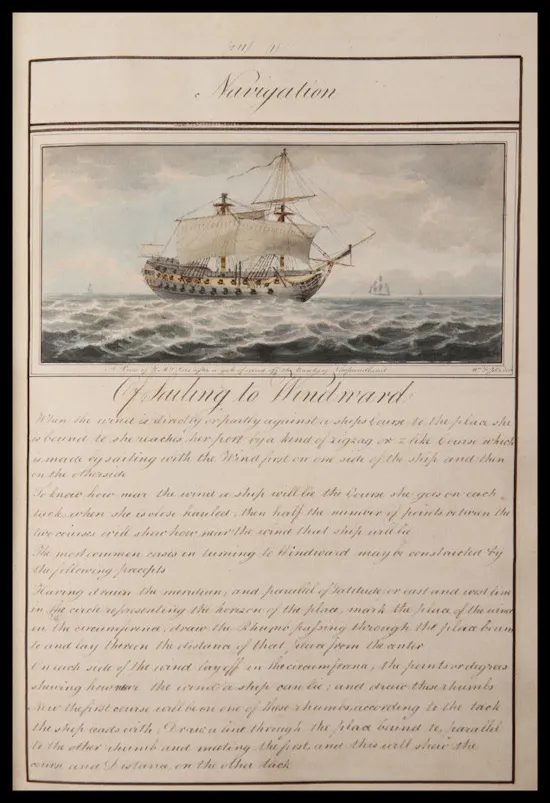 Navigation
after a gale of wind off the Banks of Newfoundland
Of Sailing to Windward
When the wind is directly or partly against a ships Course to the place she
is bound to she reaches her port by a kind of zigzag or z like Course which
is made by sailing with the Wind first on one side of the ship and then
on the otherside
To know how near the wind a ship will lie the Course she goes on each
tack when she is close hauled, then half the number of points between the
two courses will shew how near the wind that ship will lie
The most common cases in turning to Windward may be constructed by
the following precepts
Having drawn the meridian, and parallel of Latitude or east and west line
in the circle representing the horizon of the place, mark the place of the wind
in the circumference, draw the Rhumb passing through the place bound
to and lay thereon the distance of that place from the center
On each side of the wind lay off in the circumference, the points or degrees
shewing how near the wind a ship can lie; and draw these rhumbs
Now the first course will be on one of these rhumbs according to the tack
the ship leads with; Draw a line through the place bound to, parallel
to the other rhumb and meeting the first, and this will shew the
course and Distance on the other tack